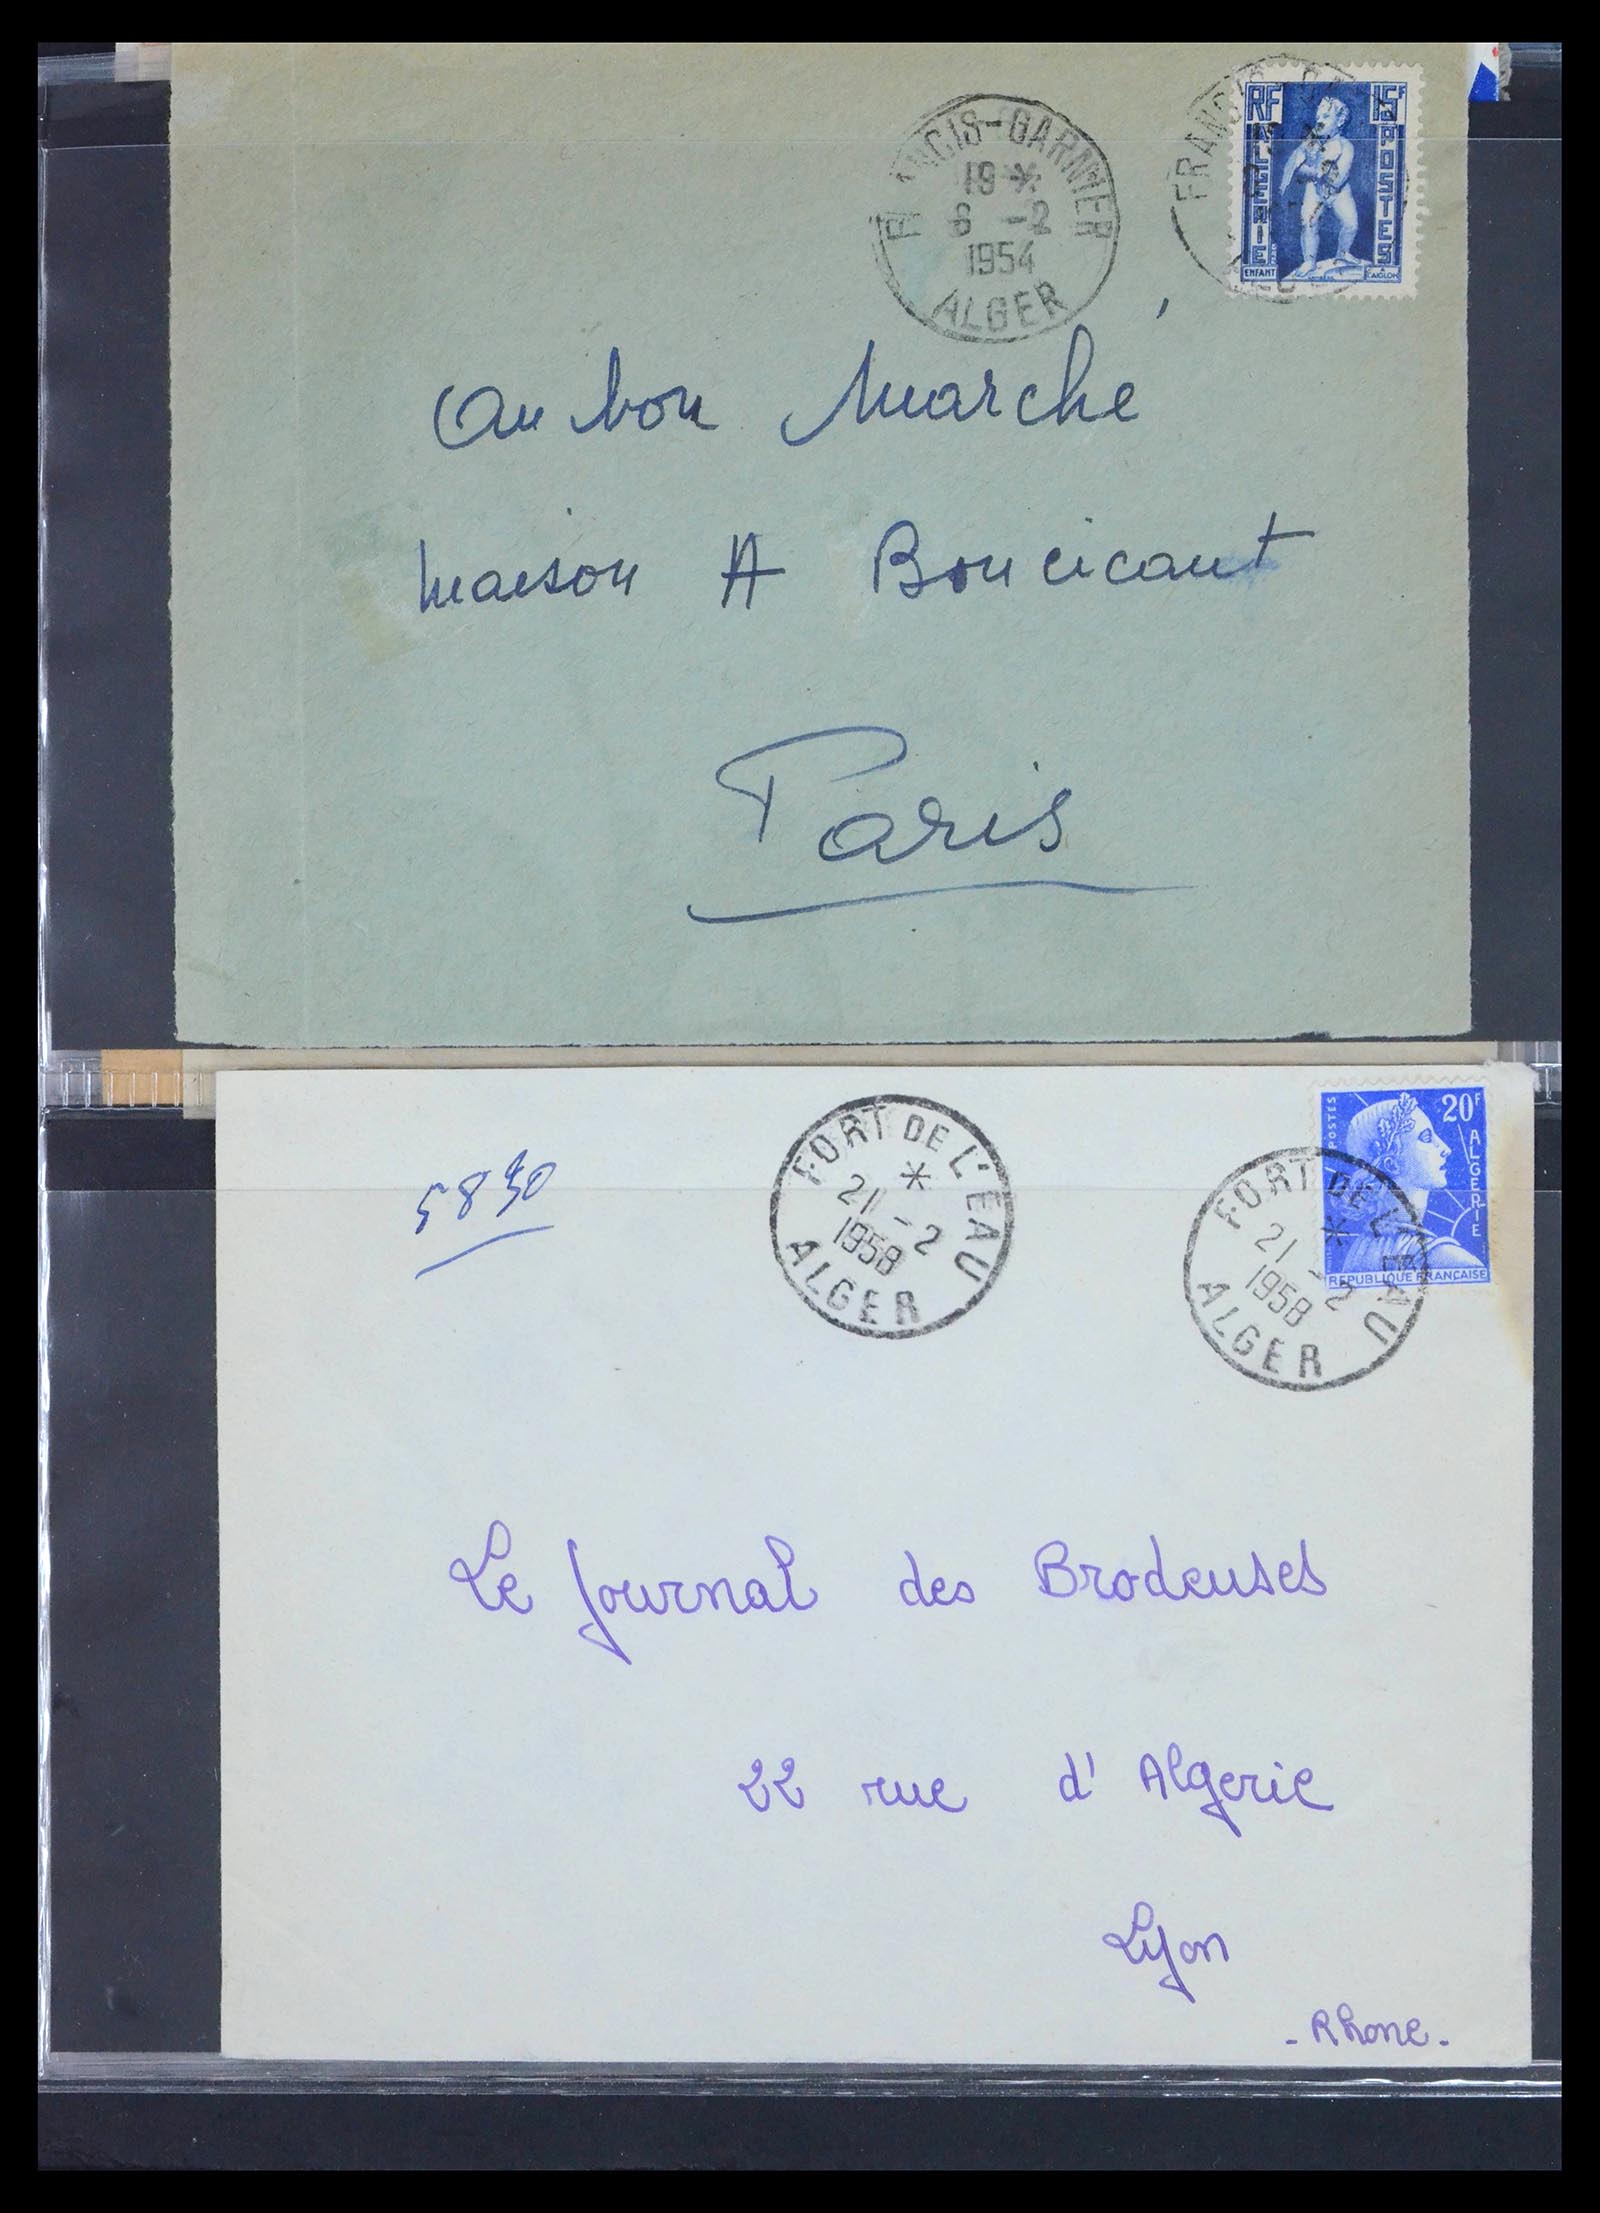 FRANCIS-GARNIER
19 *
8 -2
1954
ALGER
RF 15F
ALGERIE POSTES
ENFANT A L'AIGLON
Au bon Marché
Maison A Boucicaut
Paris
5830
FORT DE L'EAU
*
21 -2
1958
ALGER
FORT DE L'EAU
*
21 -2
1958
ALGER
POSTES 20F ALGERIE
REPUBLIQUE FRANÇAISE
Le Journal des Brodeuses
22 rue d'Algerie
Lyon
- Rhone -